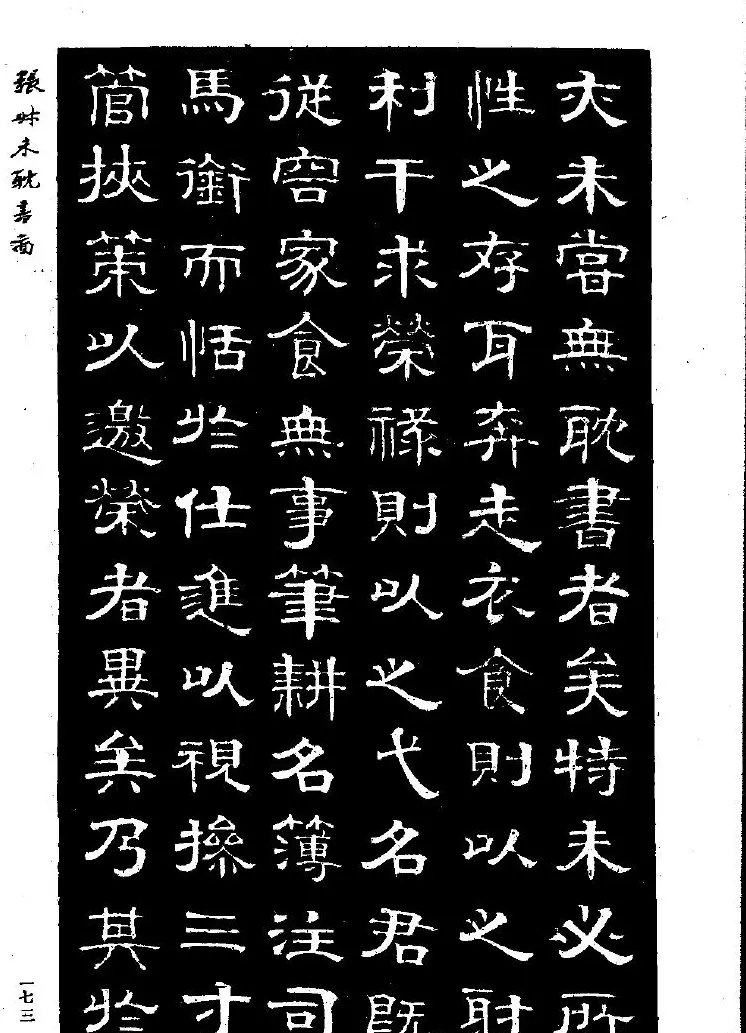 夫未嘗無耽書者矣特未必所
性之存耳奔走衣食則以之財
利干求榮祿則以之弋名君既
從容家食無事筆耕名簿注司
馬銜而恬於仕進以視操三寸
管挾策以邀榮者異矣乃其於
張叔未耽書圖
一七三